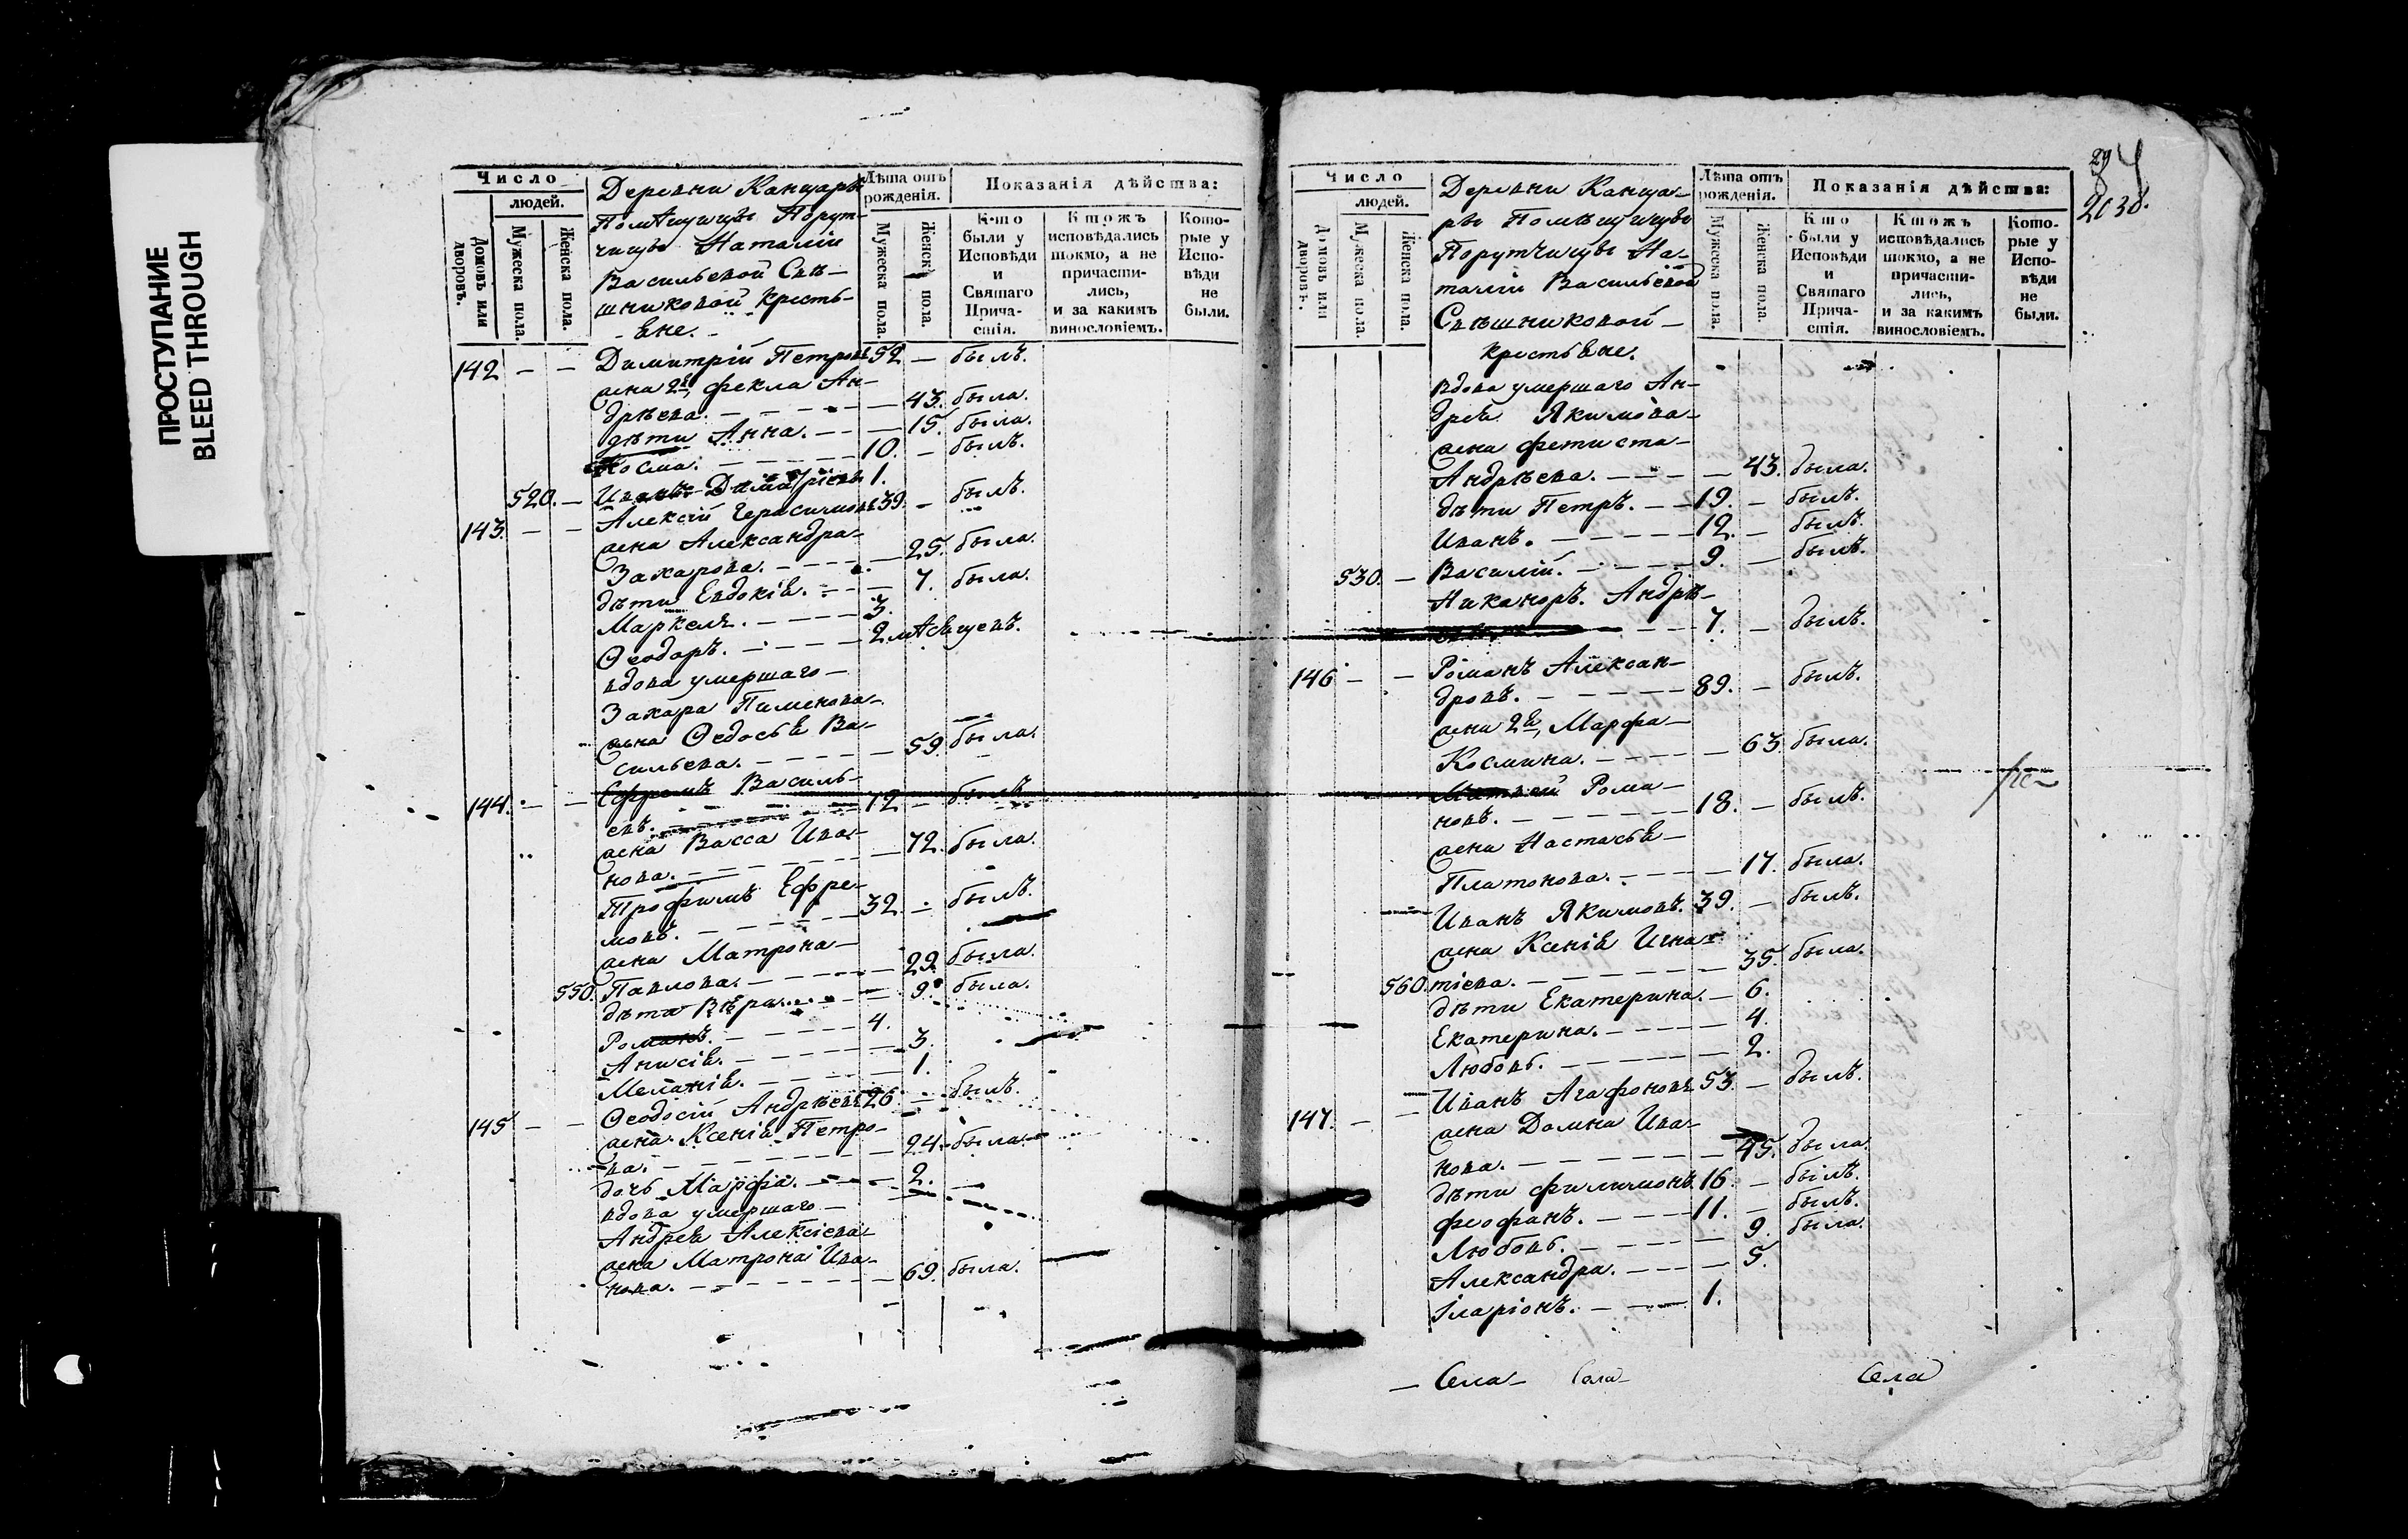 ПРОСТУПАНИЕ
BLEED THROUGH
Число
людей.
Домовъ или дворовъ.
Мужеска пола.
Женска пола.
Деревни Канцаръ
Помѣщицы Порут-
чицы Наталіи
Васильевой Свѣ-
шниковой кресть-
яне.
Лѣта отъ рожденія.
Мужеска пола.
Женска пола.
Показанія дѣйства:
Кто были у Исповѣди и Святаго Причастія.
Ктожъ исповѣдались токмо, а не причастились, и за какимъ винословіемъ.
Которые у Исповѣди не были.
142 — — Димитрій Петровъ 52 — былъ.
жена 2я, Фекла Ан-
дрѣева. — 43. была.
дѣти Анна. — 15. была.
Косма. 10. — былъ.
520. — Иванъ Димитріевъ 1.
143. — — Алексій Герасимовъ 39. — былъ.
жена Александра
Захарова. — 25. была.
дѣти Евдокія. — 7. была.
Маркелъ. 3.
Ѳеодоръ. 2 мѣсяцевъ.
вдова умершаго
Захара Пименова
жена Ѳедосья Ва-
сильева. — 59. была.
144. — — Ефремъ Василь-
евъ. 72 — былъ
жена Васса Ива-
нова. — 72. была.
Трофимъ Ефре-
мовъ. 32. — былъ.
жена Матрона
550. Павлова. — 29. была.
дѣти Вѣра. — 9. была.
Романъ. 4.
Анисія. — 3.
Меланія. — 1.
145 — — Ѳеодосій Андрѣевъ 26 — былъ.
жена Ксенія Петро-
ва. — 24. была.
дочь Марфа. — 2.
вдова умершаго
Андрея Алексіева
жена Матрона Ива-
нова. — 69. была.
294
2038.
Число
людей.
Домовъ или дворовъ.
Мужеска пола.
Женска пола.
Деревни Канца-
ръ Помѣщицы
Порутчицы На-
таліи Васильевой
Свѣшниковой
крестьяне.
Лѣта отъ рожденія.
Мужеска пола.
Женска пола.
Показанія дѣйства:
Кто были у Исповѣди и Святаго Причастія.
Ктожъ исповѣдались токмо, а не причастились, и за какимъ винословіемъ.
Которые у Исповѣди не были.
вдова умершаго Ан-
дрея Якимова
жена Фетиста
Андрѣева. — 43. была.
дѣти Петръ. 19. — былъ.
Иванъ. 12. — былъ.
530. — Василій. 9. — былъ.
Никаноръ. Андрѣ-
7. — былъ.
146 — — Романъ Алексан-
дровъ. 89. — былъ.
жена 2я, Марфа
Космина. — 63 была.
Матвей Рома-
новъ. 18. — былъ.
жена Настасья
Платонова. — 17. была.
Иванъ Якимовъ. 39. — былъ.
жена Ксенія Игна-
560. тіева. — 35. была.
дѣти Екатерина. — 6.
Екатерина. — 4.
Любовь. — 2.
147. — — Иванъ Агафоновъ 53. — былъ.
жена Домна Ива-
нова. — 45. была.
дѣти Филимонъ. 16. — былъ.
Феофанъ. 11. — былъ.
Любовь. — 9. была.
Александра. — 5.
Іларіонъ. 1.
Села
Села